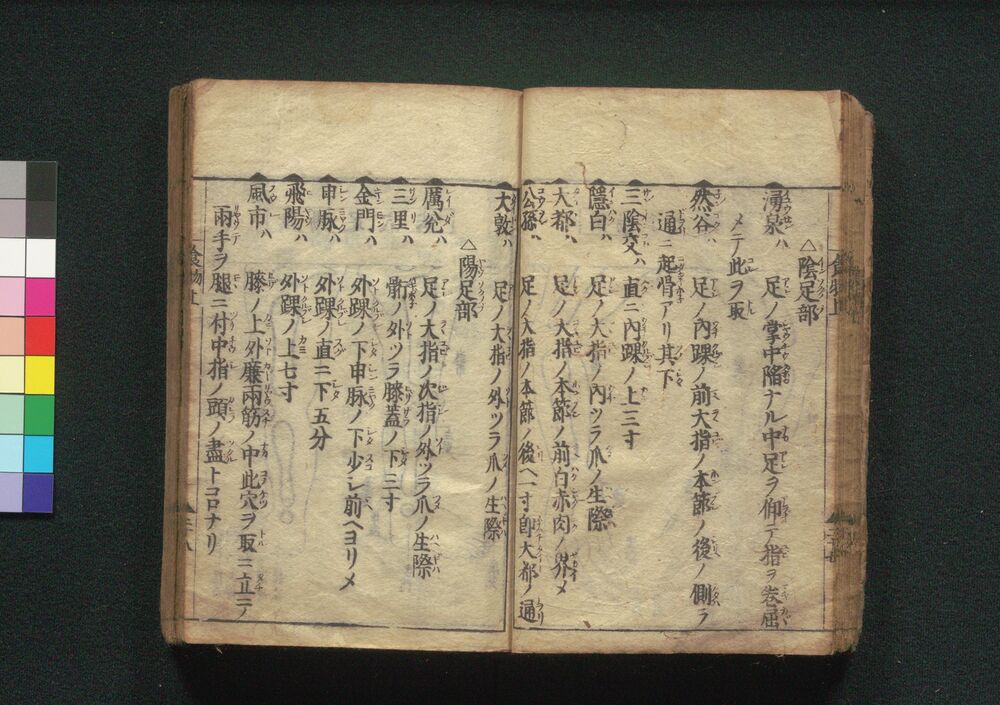 △陰足部
湧泉ハ 足ノ掌中陷ナル中足ヲ仰テ指ヲ巻屈
メテ此ヲ取
然谷ハ 足ノ內踝ノ前大指ノ本節ノ後ノ側ラ
通ニ起骨アリ其下
三陰交ハ 直ニ內踝ノ上三寸
隱白ハ 足ノ大指ノ內ツラ爪ノ生際
大都ハ 足ノ大指ノ本節ノ前白赤肉ノ界メ
公孫ハ 足ノ大指ノ本節ノ後ヘ一寸卽大都ノ通
大敦ハ 足ノ大指ノ外ツラ爪ノ生際
△陽足部
厲兊ハ 足ノ大指ノ次指ノ外ツラ爪ノ生際
三里ハ 䯒ノ外ツラ膝蓋ノ下三寸
金門ハ 外踝ノ下申脉ノ下少シ前ヘヨリメ
申脉ハ 外踝ノ直ニ下五分
飛陽ハ 外踝ノ上七寸
風市ハ 膝ノ上外廉兩筋ノ中此穴ヲ取ニ立テ
兩手ヲ腿ニ付中指ノ頭ノ盡トコロナリ